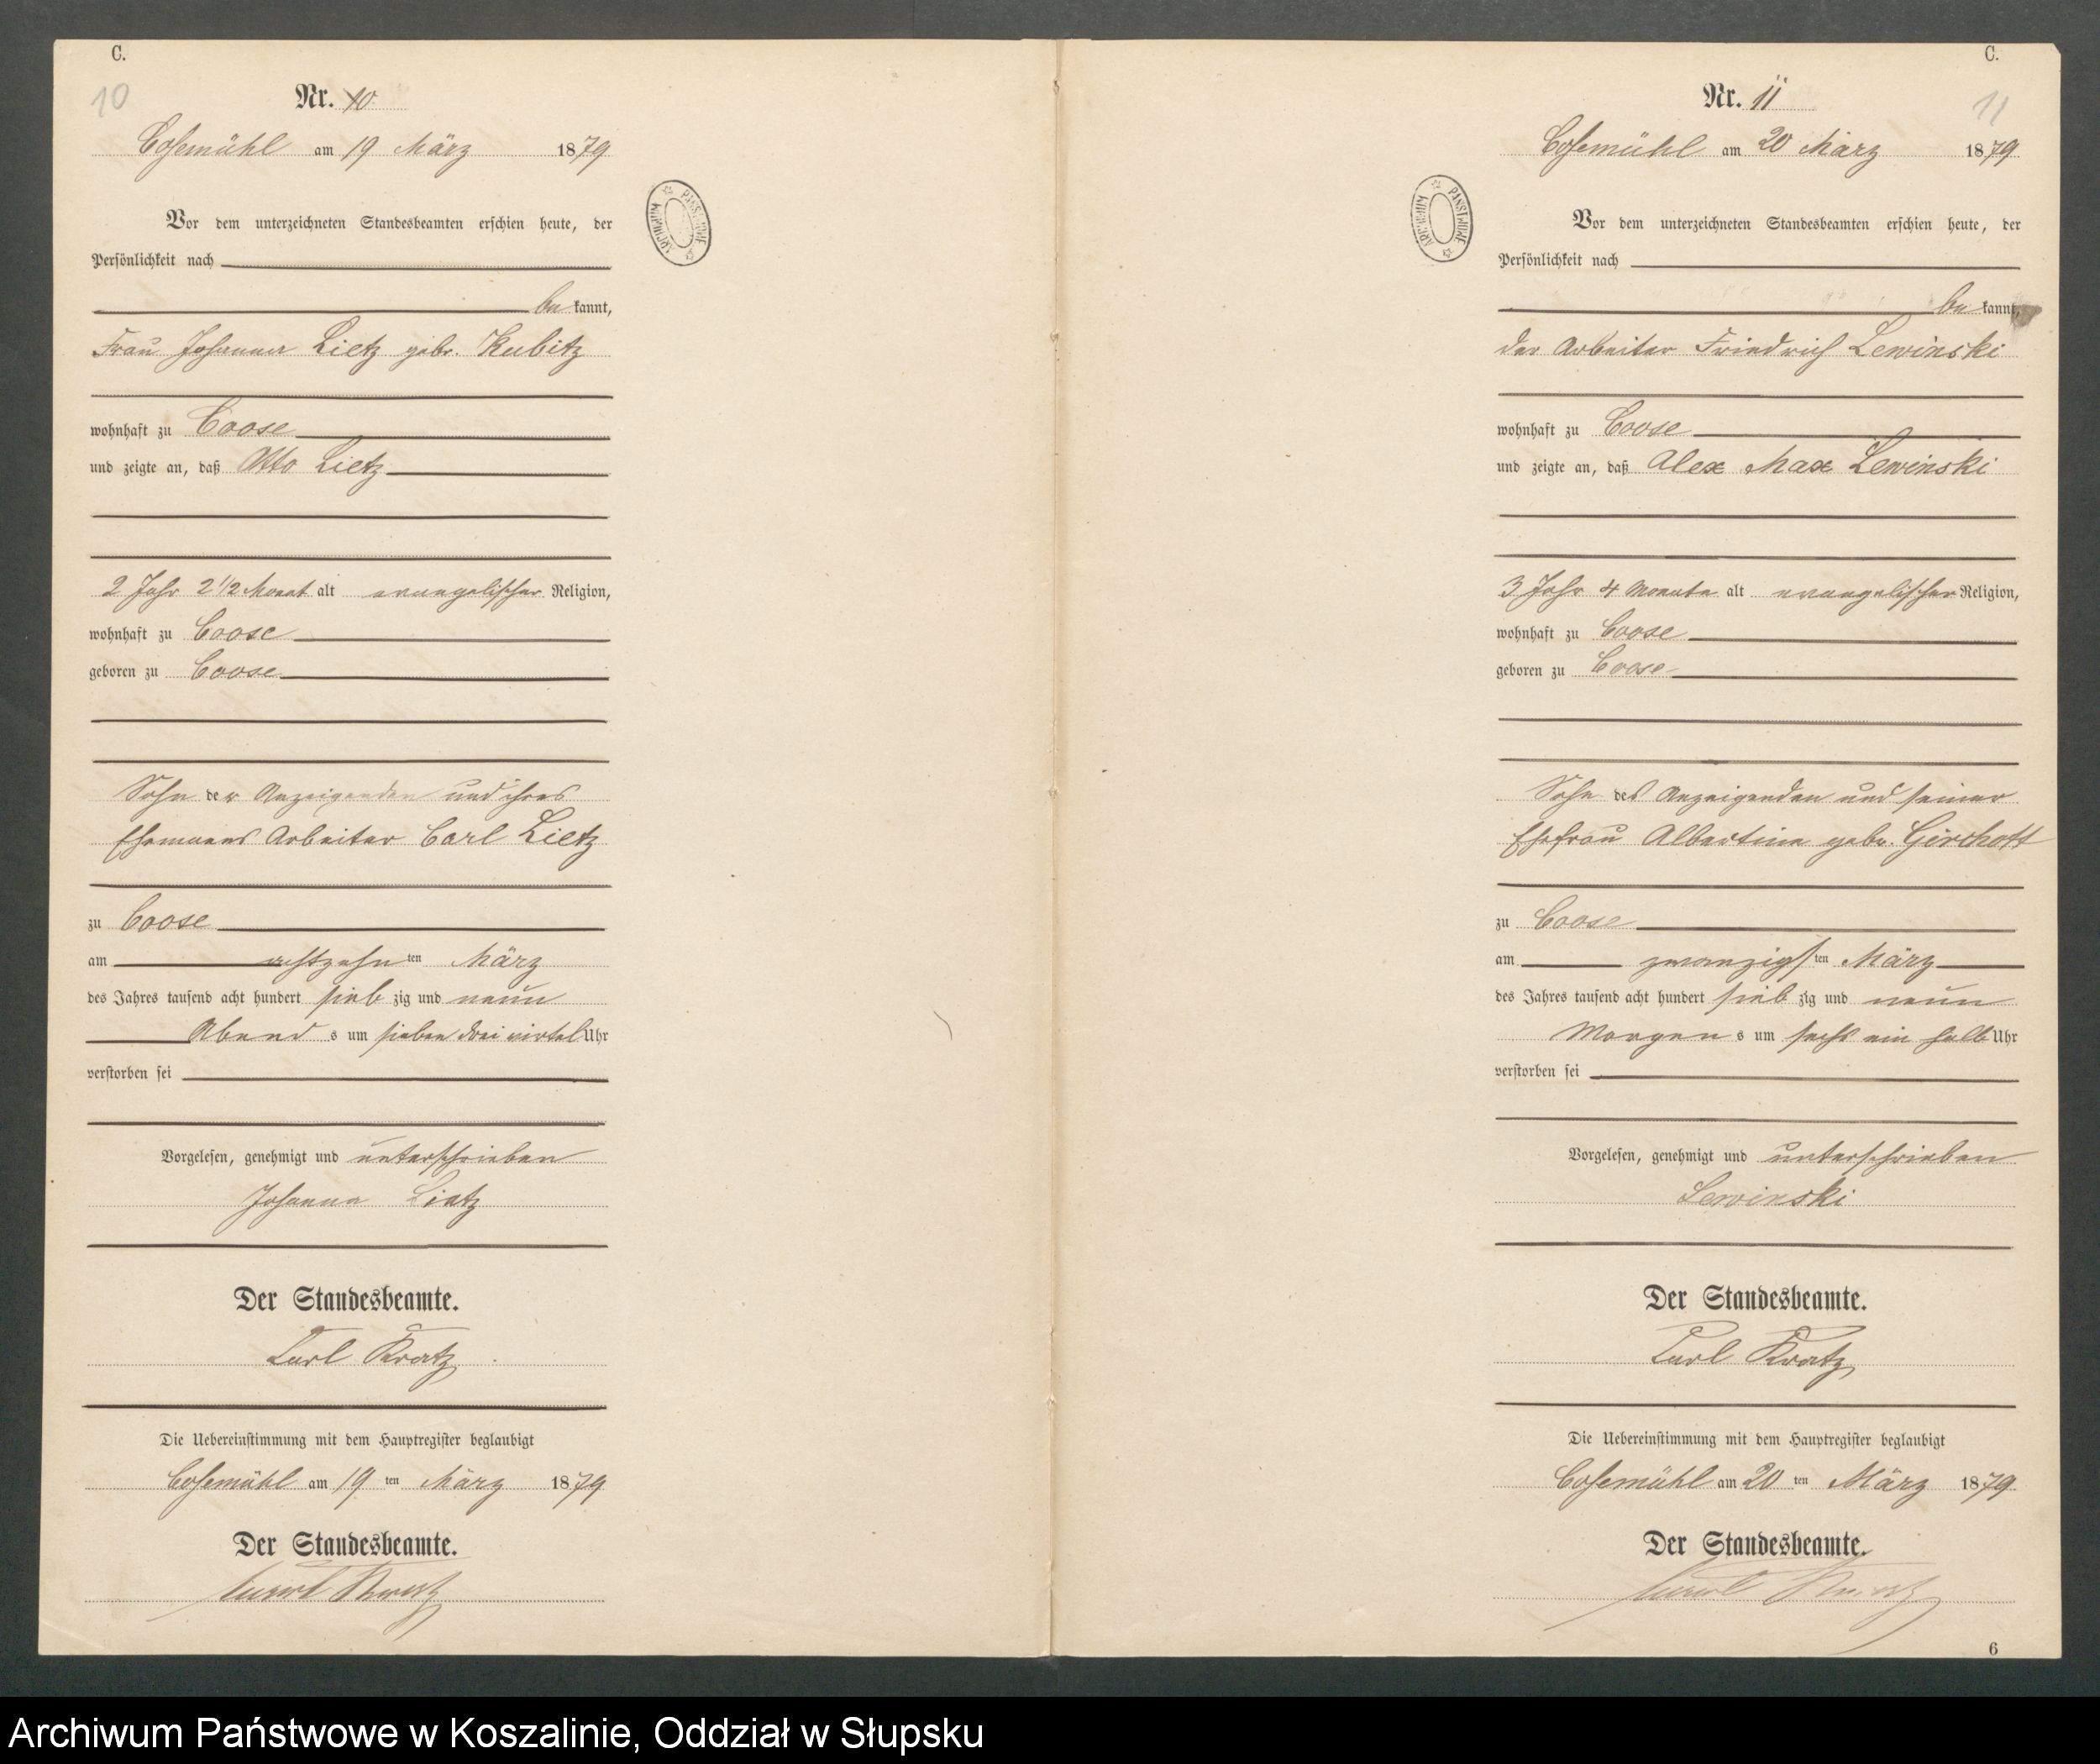 C.
10
Nr. 10
Cosemühl am 19 März 1879
Vor dem unterzeichneten Standesbeamten erschien heute, der
Persönlichkeit nach
be kannt,
Frau Johanna Lietz gebr. Kubitz
wohnhaft zu Coose
und zeigte an, daß Otto Lietz
2 Jahr 2 1/2 Monat alt evangelischer Religion,
wohnhaft zu Coose
geboren zu Coose
Sohn der Anzeigenden und ihres
Ehemanns Arbeiter Carl Lietz
zu Coose
am achtzehn ten März
des Jahres tausend acht hundert sieb zig und neun
Abend s um sieben drei virtel Uhr
verstorben sei
Vorgelesen, genehmigt und unterschrieben
Johanna Lietz
Der Standesbeamte.
Carl Kratz
Die Uebereinstimmung mit dem Hauptregister beglaubigt
Cosemühl am 19 ten März 1879
Der Standesbeamte.
ARCHIWUM PAŃSTWOWE
C.
11
Nr. 11
Cosemühl am 20 März 1879
Vor dem unterzeichneten Standesbeamten erschien heute, der
Persönlichkeit nach
be kannt,
der Arbeiter Friedrich Lewinski
wohnhaft zu Coose
und zeigte an, daß Alex Max Lewinski
3 Jahr 4 Monate alt evangelischer Religion,
wohnhaft zu Coose
geboren zu Coose
Sohn des Anzeigenden und seiner
Ehefrau Albertine gebr. Girchott
zu Coose
am zwanzigs ten März
des Jahres tausend acht hundert sieb zig und neun
Morgen s um sechs ein halb Uhr
verstorben sei
Vorgelesen, genehmigt und unterschrieben
Lewinski
Der Standesbeamte.
Carl Kratz
Die Uebereinstimmung mit dem Hauptregister beglaubigt
Cosemühl am 20 ten März 1879
Der Standesbeamte.
6
ARCHIWUM PAŃSTWOWE
Archiwum Państwowe w Koszalinie, Oddział w Słupsku